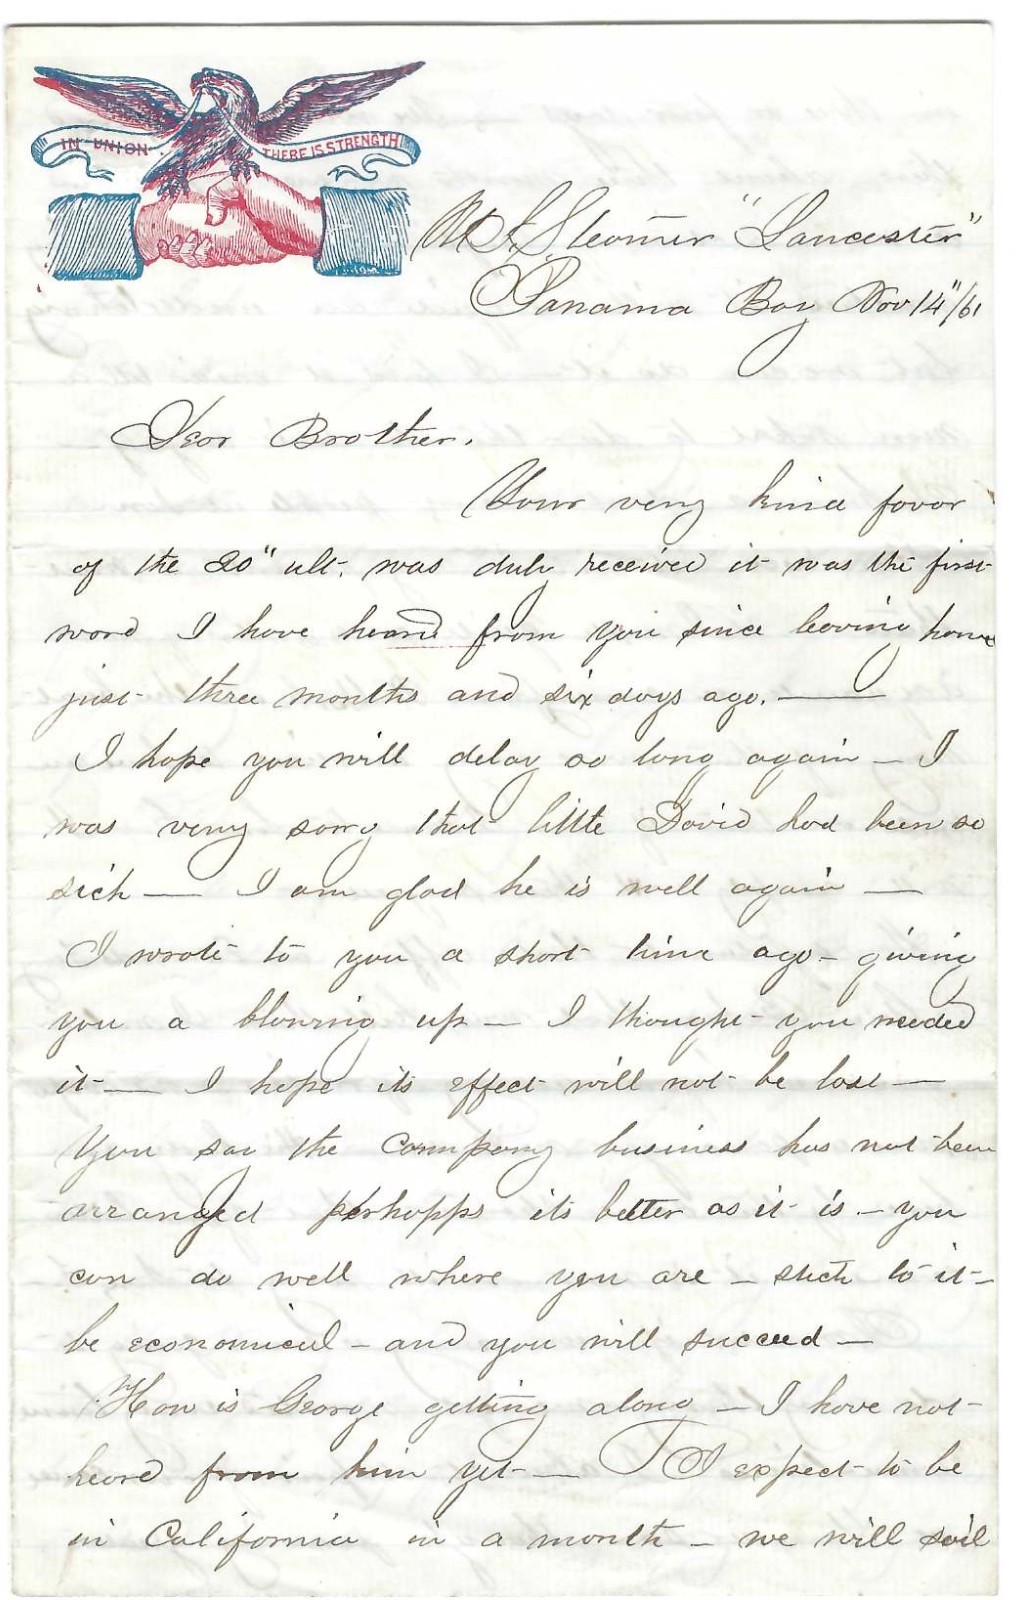 IN UNION THERE IS STRENGTH
U.S. Steamer "Lancaster"
Panama Bay Nov 14"/61
Dear Brother.
Your very kind favor
of the 20" ult. was duly received it was the first
word I have heard from you since leaving home
just three months and six days ago. —
I hope you will delay so long again — I
was very sorry that little David had been so
sick — I am glad he is well again —
I wrote to you a short time ago – giving
you a blowing up — I thought you needed
it — I hope its effect will not be lost —
You say the Company business has not been
arranged perhapps its better as it is – you
can do well where you are – stick to it –
be economical – and you will succeed –
How is George getting along – I have not
heard from him yet – I expect to be
in California in a month – we will sail